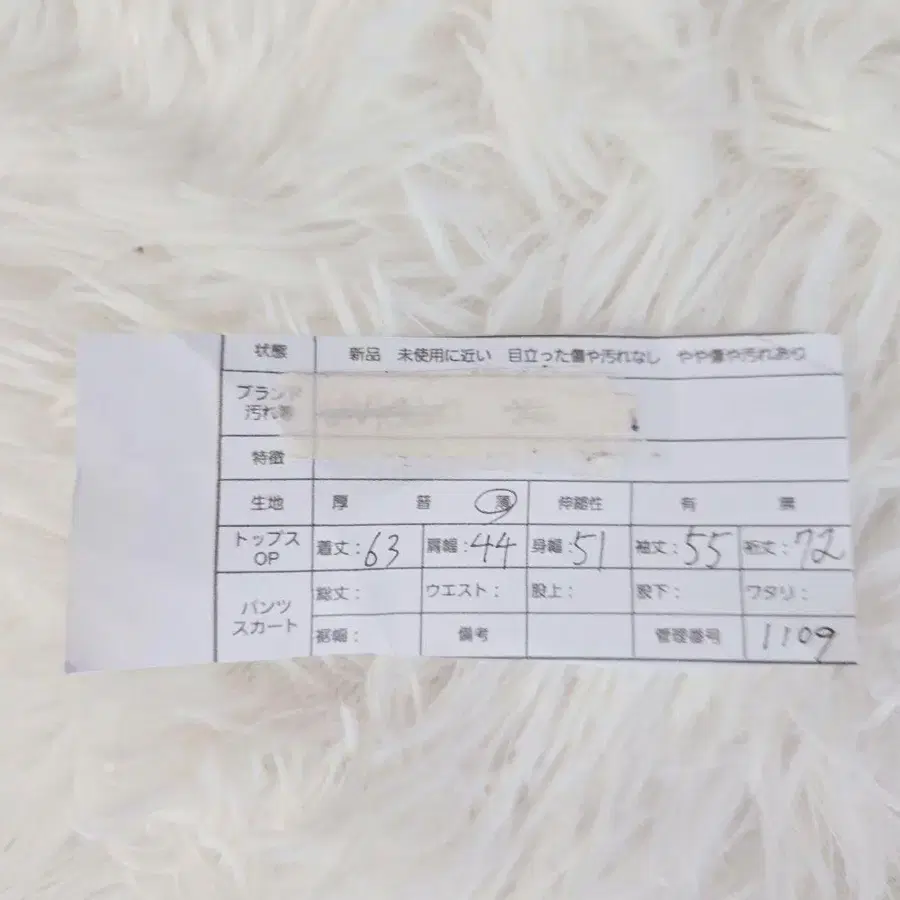 状態 新品 未使用に近い 目立った傷や汚れなし やや傷や汚れあり
ブランド
汚れ等
特徴
生地 厚 普 薄 伸縮性 有 無
トップス
OP 着丈:63 肩幅:44 身幅:51 袖丈:55 裄丈:72
パンツ
スカート
総丈: ウエスト: 股上: 股下: ワタリ:
裾幅: 備考 管理番号 1109